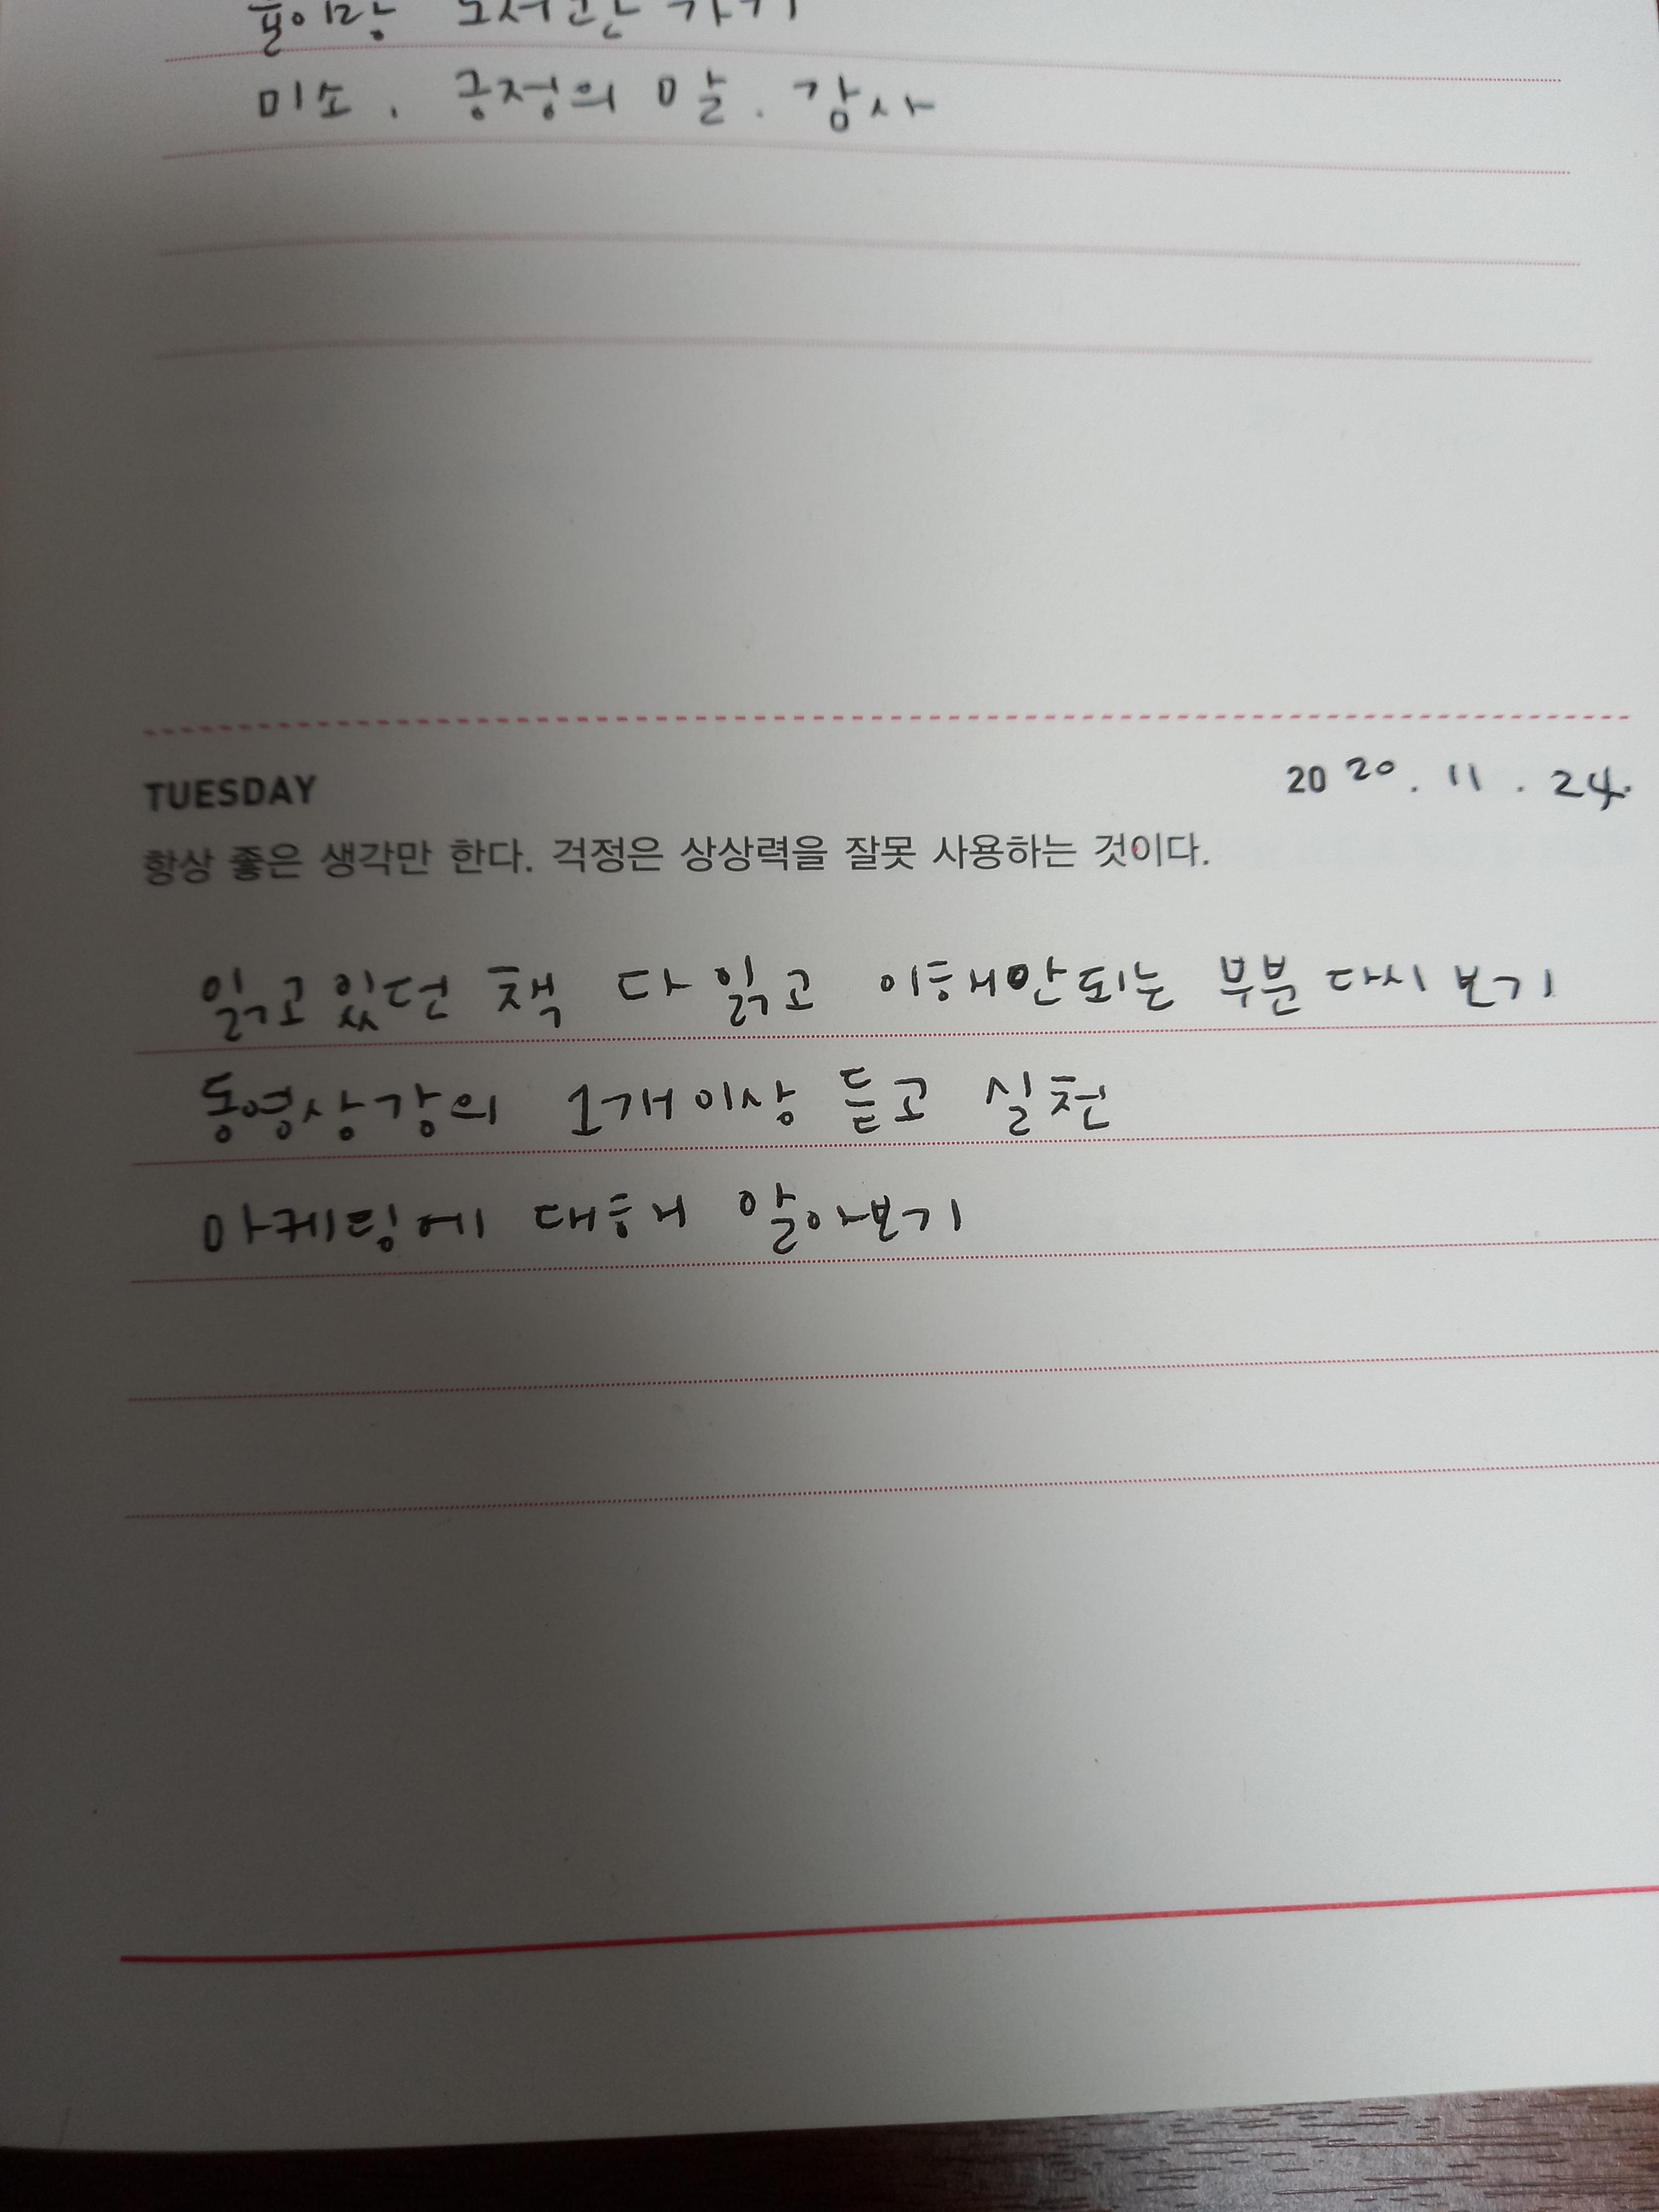 도서관 가기
미소. 긍정의 말. 감사
TUESDAY
2020. 11. 24.
항상 좋은 생각만 한다. 걱정은 상상력을 잘못 사용하는 것이다.
읽고있던 책 다 읽고 이해안되는 부분 다시 보기
동영상강의 1개이상 듣고 실천
마케팅에 대해 알아보기